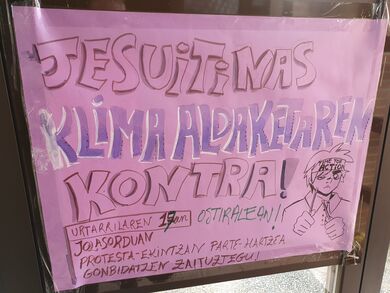 JESUITINAS
KLIMA ALDAKETAREN
KONTRA!
URTARRILAREN 17an OSTIRALEAN!!
JOLASORDUAN
PROTESTA-EKINTZAN PARTE-HARTZEA
GONBIDATZEN ZAITUZTEGU!
TIME FOR
ACTION